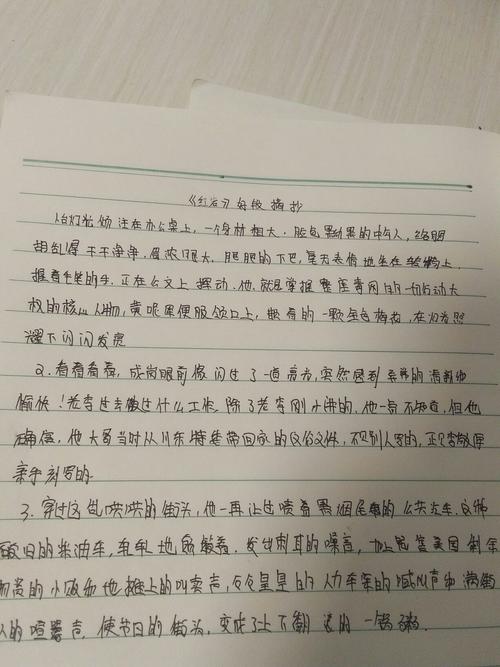 《红岩》每段摘抄
台灯光倾注在办公桌上，一个身材粗大，脸色黝黑的中年人，络腮
胡剃得干干净净，眉浓眼大，肥肥的下巴，毫无表情地坐在转椅上，
握着毛笔的手，正在公文上挥动。他，就是掌握整座集团的一切动大
权的核心人物，黄呢军便服领口上，嵌着的一颗金色梅花，在灯光照
耀下闪闪发亮
2、看着看着，成岗眼前像闪过了一道亮光，突然感到无比的清新和
愉快！老李过去做过什么工作，除了老李刚才讲的，他一号不知道，但他
确信，他大哥当时从川东特地带回家的文件，不是别人写的，正是李敬原
亲手刻写的
3、穿过这乱哄哄的街头，他一再让过喷着黑烟尾巴的公共汽车，这种
破旧的柴油车，轧轧地颠簸着，发出刺耳的噪音，加上兜售美国剩余
物资的小贩和地摊上的叫卖声，仓仓皇皇的人力车案的喊叫声和满街
人的喧嚣声，使节日的街头，变成了上下翻滚的一锅粥。